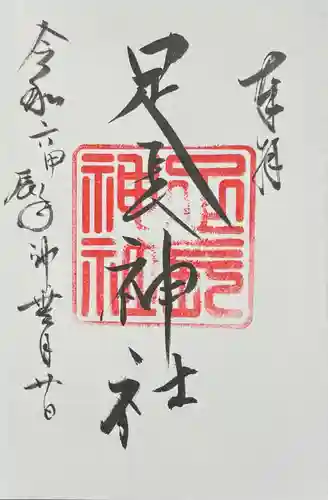 奉拝
足長神社
令和六甲辰年神無月廿日
足長神社